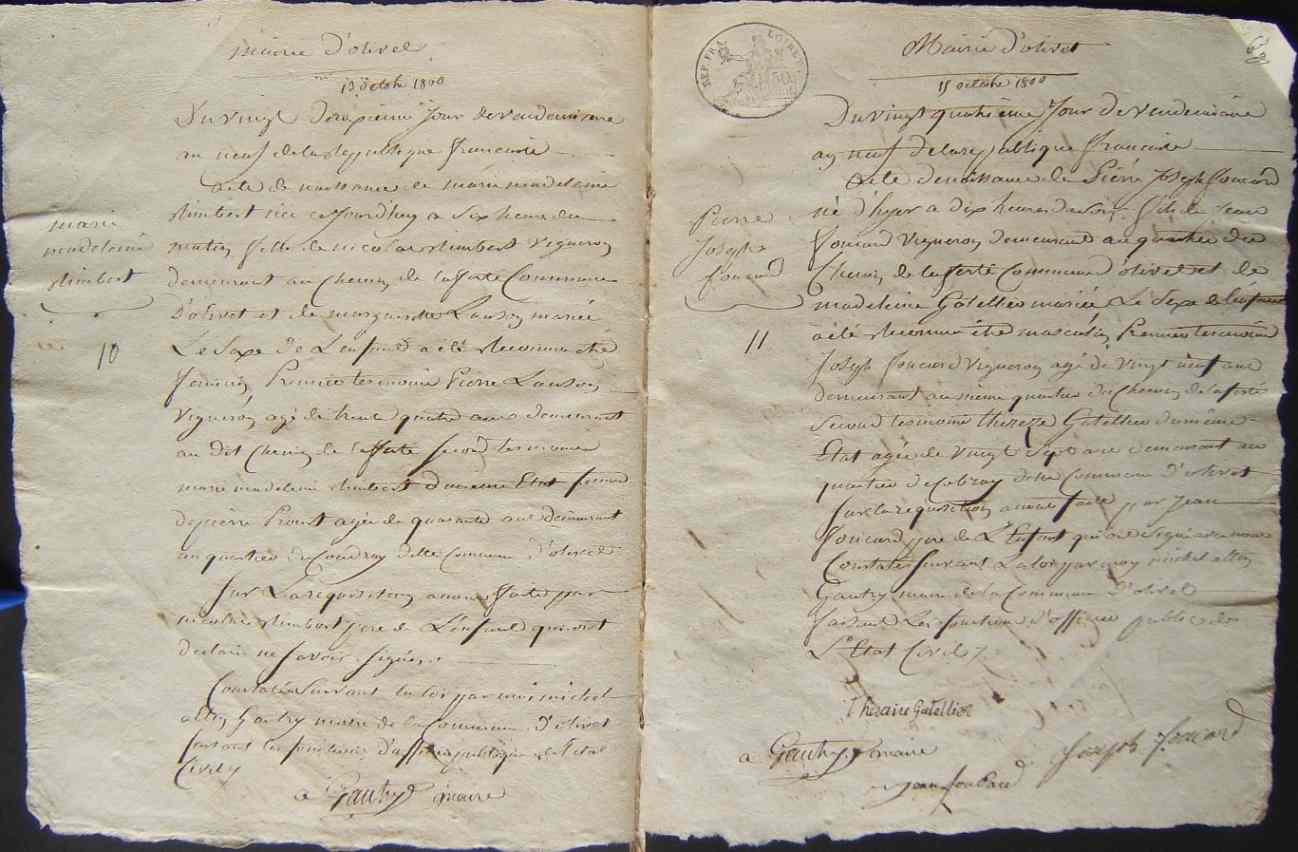 mairie d'olivet
13 octobre 1800
Du vingt deuxieme jour de vendemiaire
an neuf de la republique francaise
acte de naissance de marie madeleine
Rimbert née ce jourdhuy a six heure du
matin fille de nicolas Rimbert vigneron
demeurant au Chemin de la ferté Commune
D'olivet et de marguerite Lanson mariée
Le Sexe de L'enfant a été Reconnu etre
feminin Premier temoin Pierre Lanson
vigneron agé de trente quatre ans demeurant
au dit Chemin de la fferté second temoin
marie madeleine Rimbert du meme Etat femme
de pierre Proust agée de quarante ans demeurant
au quartier du Coudray dette Commune D'olivet
Sur La requisition a nous ffaite par
nicolas Rimbert pere de L'enfant qui ont
declaré ne savoir signer
Constaté suivant la loi par moi michel
Gautry maire de la Commune D'olivet
faisant les fonctions d'officier publique de l'etat
Civil
a Gautry maire
marie
madeleine
Rimbert
10
REP. FRA.
LOIRET
Mairie d'olivet
15 octobre 1800
Du vingt quatrieme jour de vendemiaire
an neuf de la republique francaise
Acte de naissance de Pierre Joseph foucard
né d'hyer a dix heures du soir fils de Jean
foucard vigneron demeurant au quartier du
Chemin de la ferté Commune d'olivet et de
madeleine Gatellier mariée Le Sexe de l'enfant
a été reconnu etre masculin Premier temoin
Joseph foucard vigneron agé de vingt neuf ans
demeurant au meme quartier du Chemin de la ferté
Second temoin therezze Gatellier du même
Etat agée de vingt sept ans demeurant au
quartier de Cobray dette Commune D'olivet
Sur la requisition a nous faite par Jean
foucard pere de L'Enfant qui ont signé avec nous
Constaté suivant La loi par moy michel
Gautry maire de la Commune D'olivet
faisant Les fonctions d'officier public de
L'Etat Civil
Pierre
Joseph
foucard
11
Theraice Gatellier
a Gautry maire
Joseph foucard
Jean foucard